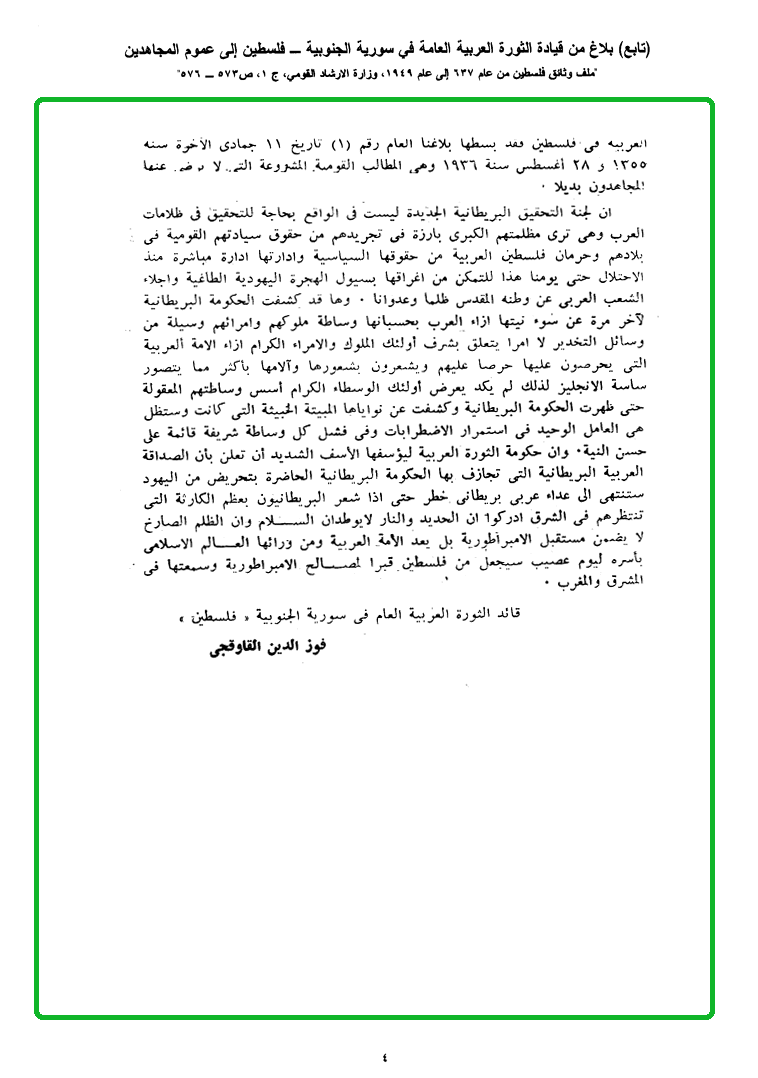 (تابع) بلاغ من قيادة الثورة العربية العامة في سورية الجنوبية ــ فلسطين إلى عموم المجاهدين
"ملف وثائق فلسطين من عام ٦٣٧ إلى عام ١٩٤٩، وزارة الارشاد القومي، ج ١، ص٥٧٣ ــ ٥٧٦"
العربية فى فلسطين فقد بسطها بلاغنا العام رقم (١) تاريخ ١١ جمادى الآخرة سنه
١٣٥٥ و ٢٨ أغسطس سنة ١٩٣٦ وهى المطالب القومية المشروعة التى لا يرضى عنها
المجاهدون بديلا ٠
ان لجنة التحقيق البريطانية الجديدة ليست فى الواقع بحاجة للتحقيق فى ظلامات
العرب وهى ترى مظلمتهم الكبرى بارزة فى تجريدهم من حقوق سيادتهم القومية فى
بلادهم وحرمان فلسطين العربية من حقوقها السياسية وادارتها ادارة مباشرة منذ
الاحتلال حتى يومنا هذا للتمكن من اغراقها بسيول الهجرة اليهودية الطاغية واجلاء
الشعب العربى عن وطنه المقدس ظلما وعدوانا ٠ وها قد كشفت الحكومة البريطانية
لآخر مرة عن سوء نيتها ازاء العرب بحسبانها وساطة ملوكهم وامرائهم وسيلة من
وسائل التخدير لا امرا يتعلق بشرف أولئك الملوك والامراء الكرام ازاء الامة العربية
التى يحرصون عليها حرصا عليهم ويشعرون بشعورها وآلامها بأكثر مما يتصور
ساسة الانجليز لذلك لم يكد يعرض أولئك الوسطاء الكرام أسس وساطتهم المعقولة
حتى ظهرت الحكومة البريطانية وكشفت عن نواياها المبيتة الخبيثة التى كانت وستظل
هى العامل الوحيد فى استمرار الاضطرابات وفى فشل كل وساطة شريفة قائمة على
حسن النية٠ وان حكومة الثورة العربية ليؤسفها الأسف الشديد أن تعلن بأن الصداقة
العربية البريطانية التى تجازف بها الحكومة البريطانية الحاضرة بتحريض من اليهود
ستنتهى الى عداء عربى بريطانى خطر حتى اذا شعر البريطانيون بعظم الكارثة التى
تنتظرهم فى الشرق ادركوا ان الحديد والنار لايوطدان الســـلام وان الظلم الصارخ
لا يضمن مستقبل الامبراطورية بل يعد الأمة العربية ومن ورائها العــالم الاسلامى
بأسره ليوم عصيب سيجعل من فلسطين قبرا لمصــالح الامبراطورية وسمعتها فى
المشرق والمغرب ٠
قائد الثورة العربية العام فى سورية الجنوبية « فلسطين »
فوز الدين القاوقجى
٤